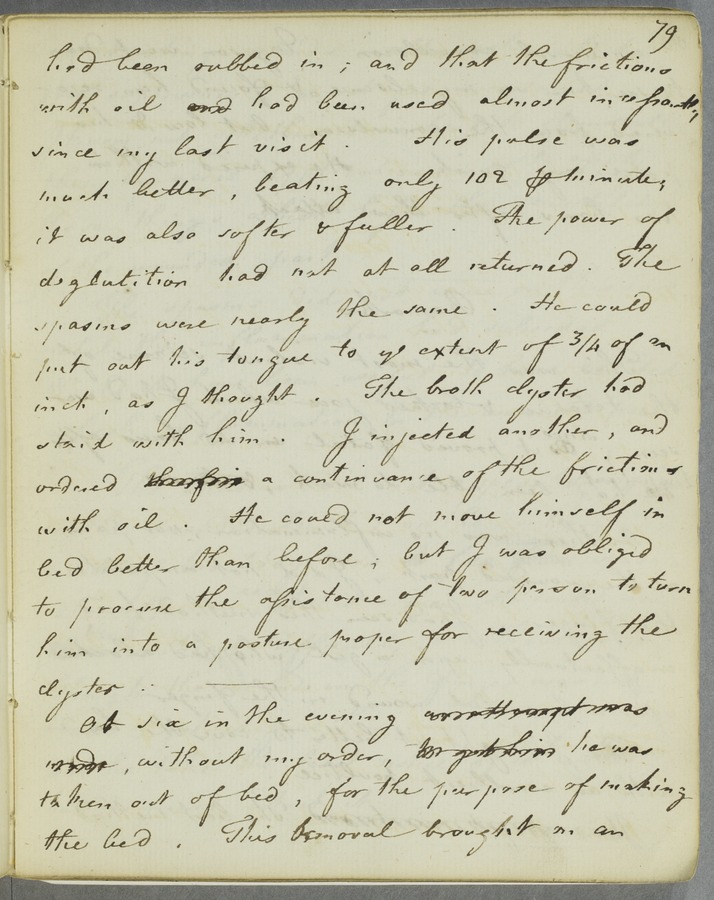 79
had been rubbed in ; and that the frictions
with oil and had been used almost incessantly,
since my last visit . His pulse was
much better , beating only 102 ℘ minute;
it was also softer & fuller . The power of
deglutition had not at all returned . The
spasms were nearly the same . He could
put out his tongue to ye extent of 3/4 of an
inch , as I thought . The broth clyster had
staid with him . I injected another , and
ordered a continuance of the frictions
with oil . He could not move himself in
bed better than before ; but I was obliged
to procure the assistance of two person to turn
him into a posture proper for receiving the
clyster .
At six in the evening an attempt was
made , without my order, to get him he was
taken out of bed , for the purpose of making
the bed . This removal brought on an